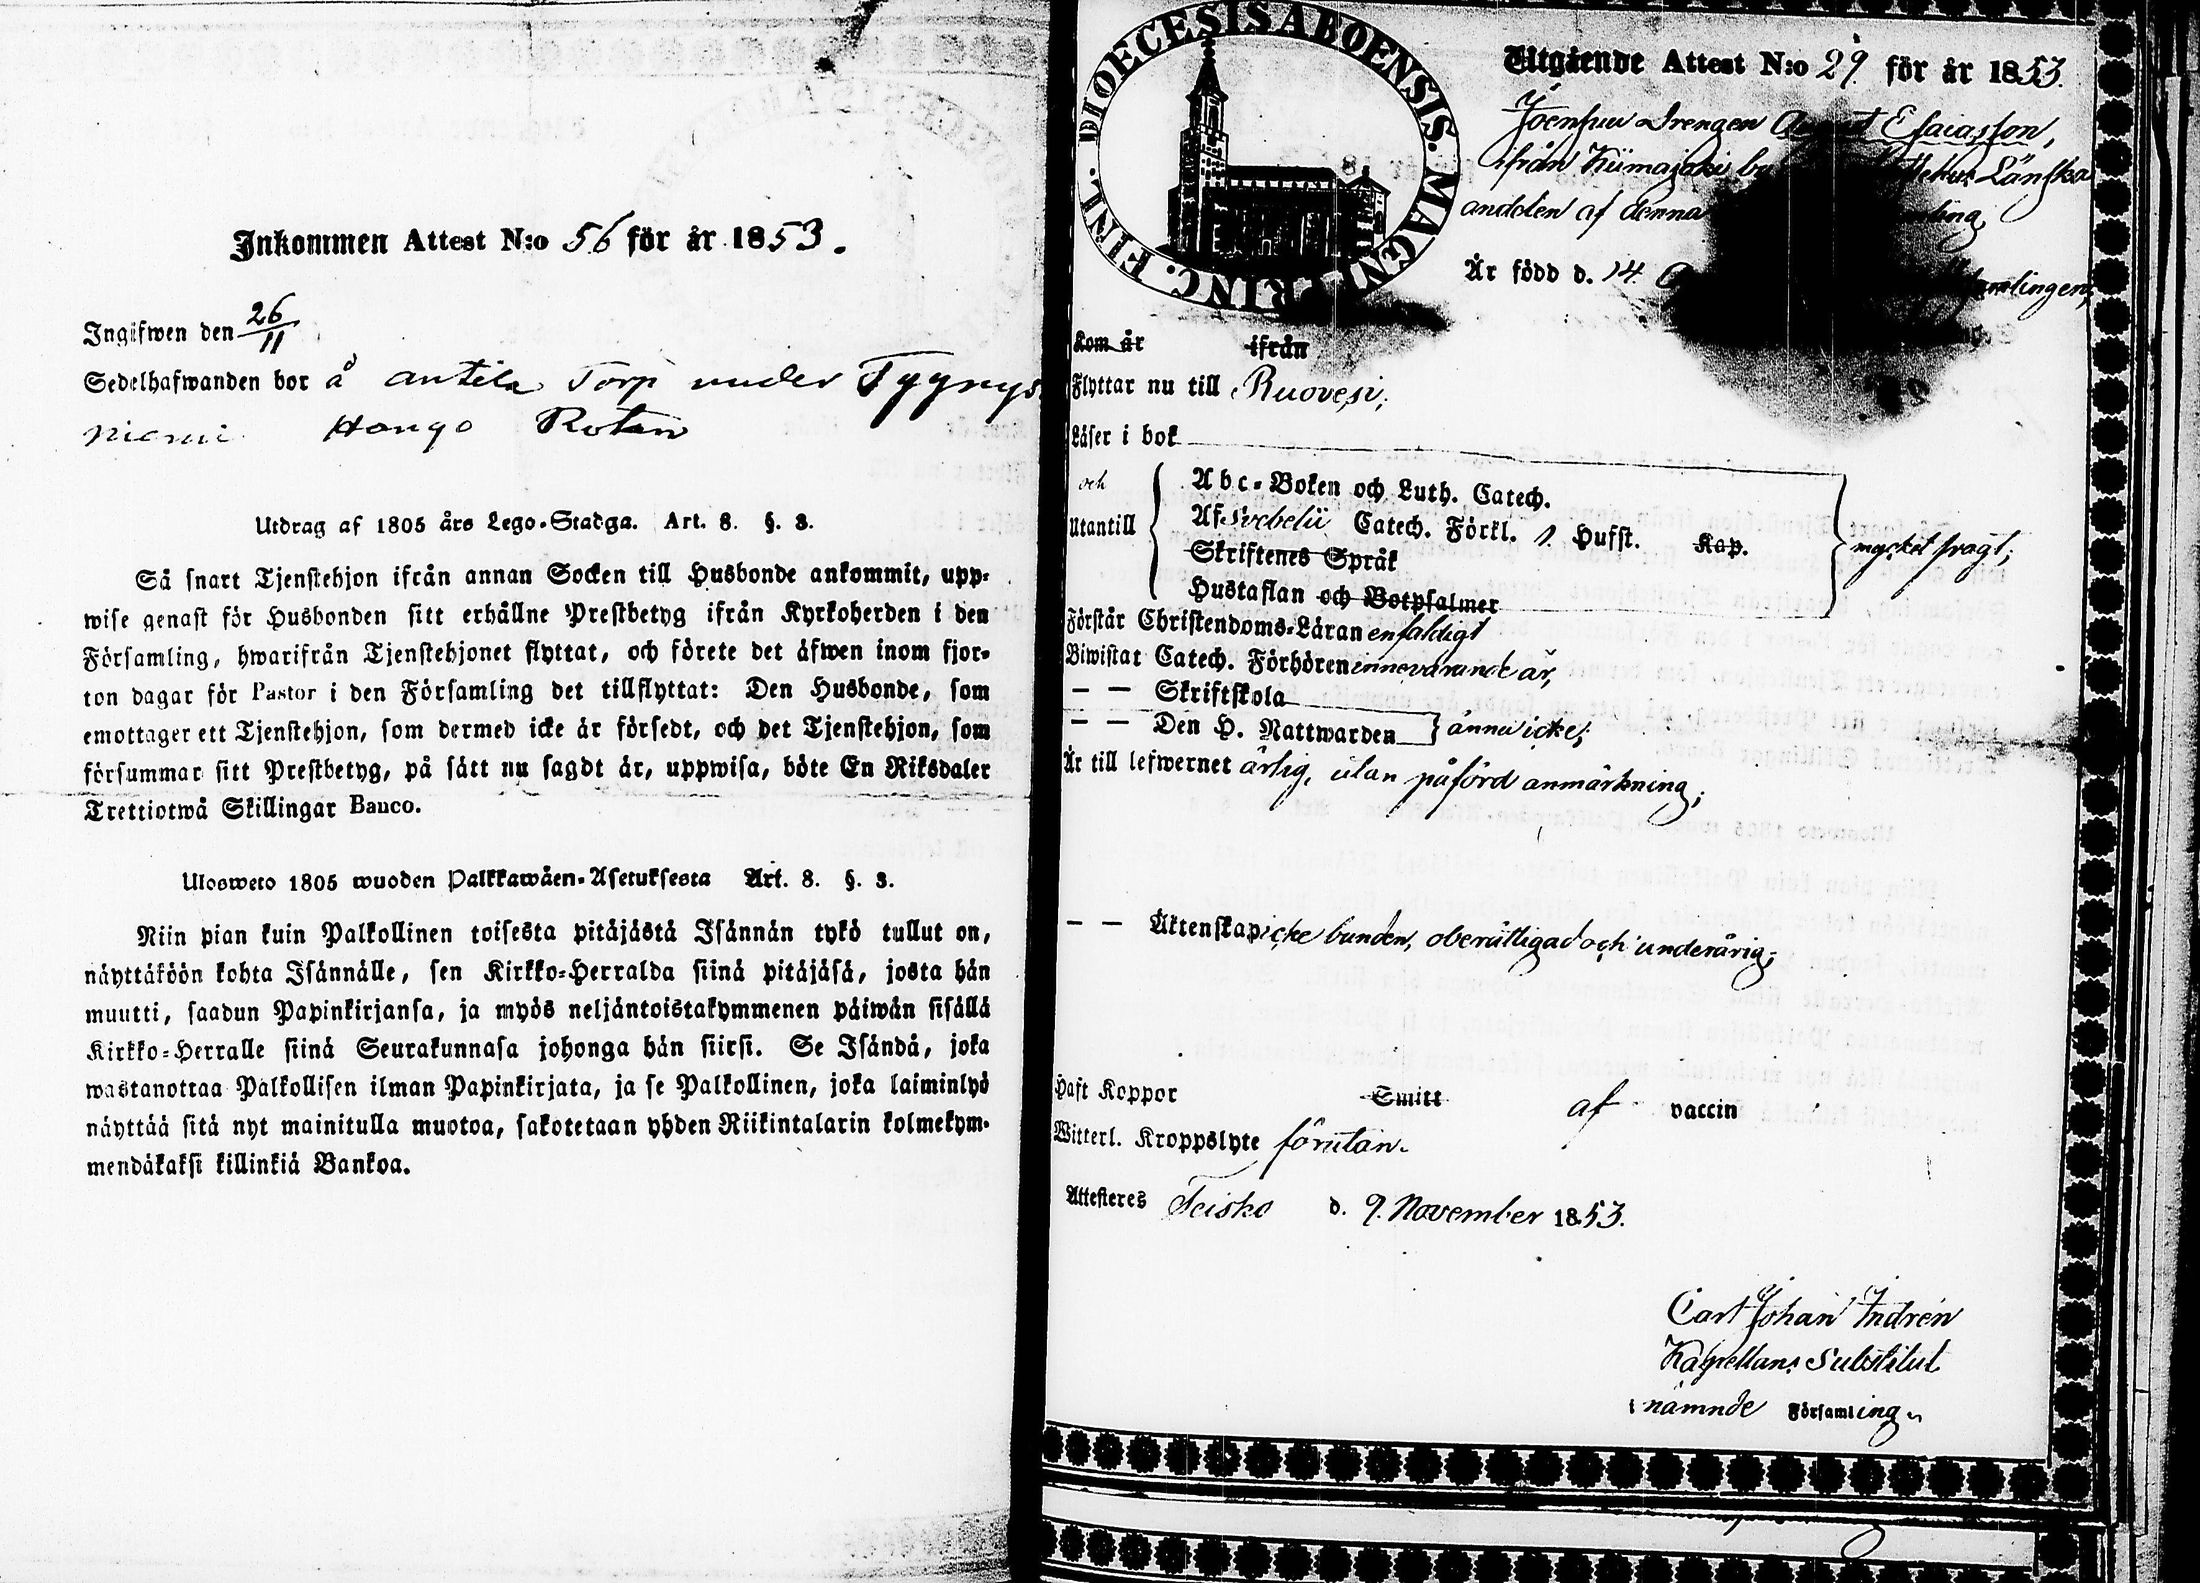 Inkommen Attest N:o 56 för år 1853.
Ingifwen den 26/11
Sedelhafwanden bor å antila Torp under Tyyrys
niemi Hongo Roten
Utdrag af 1805 års Lego-Stadga. Art. 8. §. 3.
Så snart Tjenstehjon ifrån annan Socken till Husbonde ankommit, upp-
wise genast för Husbonden sitt erhållne Prestbetyg ifrån Kyrkoherden i den
Församling, hwarifrån Tjenstehjonet flyttat, och förete det äfwen inom fjor-
ton dagar för Pastor i den Församling det tillflyttat: Den Husbonde, som
emottager ett Tjenstehjon, som dermed icke är försedt, och det Tjenstehjon, som
försummar sitt Prestbetyg, på sätt nu sagdt är, uppwisa, böte En Riksdaler
Trettiotwå Skillingar Banco.
Ulosweto 1805 wuoden Palkkawäen-Asetuksesta Art. 8. §. 3.
Niin pian kuin Palkollinen toisesta pitäjästä Isännän tykö tullut on,
näyttäköön kohta Isännälle, sen Kirkko-Herralda siinä pitäjäsä, josta hän
muutti, saadun Papinkirjansa, ja myös neljäntoistakymmenen päiwän sisällä
Kirkko-Herralle siinä Seurakunnasa johonga hän siirsi. Se Isändä, joka
wastanottaa Palkollisen ilman Papinkirjata, ja se Palkollinen, joka laiminlyö
näyttää sitä nyt mainitulla muotoa, sakotetaan yhden Riikintalarin kolmekym-
mendäkaksi killinkiä Bankoa.
DIOECESIS ABOENSIS. MAGNI PRINC. FINL.
Utgående Attest N:o 29. för år 1853.
Joenfuu Drengen August Esaiasson,
ifrån Kiimajoki Länska
andelen af denna
Är född d. 14.
Kom år ifrån
Flyttar nu till Ruovesi;
Läser i bok
och
Utantill
Abc-Boken och Luth. Catech.
Af Svebelii Catech. Förkl. 1. Hufst. Kap.
Skriftenes Språk
Hustaflan och Botpsalmer
mycket svagt;
Förstår Christendoms-Läran enfaldigt
Biwistat Catech. Förhören innevarande år,
— — Skriftskola
— — Den H. Nattwarden ännu icke;
Är till lefwernet ärlig, utan påförd anmärkning;
— — Äktenskap icke bunden, oberättigad och underårig;
Haft Koppor Smitt af vaccin
Witterl. Kroppslyte förutan.
Attesteres Teisko d. 9. November 1853.
Carl Johan Indrén
Kapellans Substitut
i nämnde Församling.